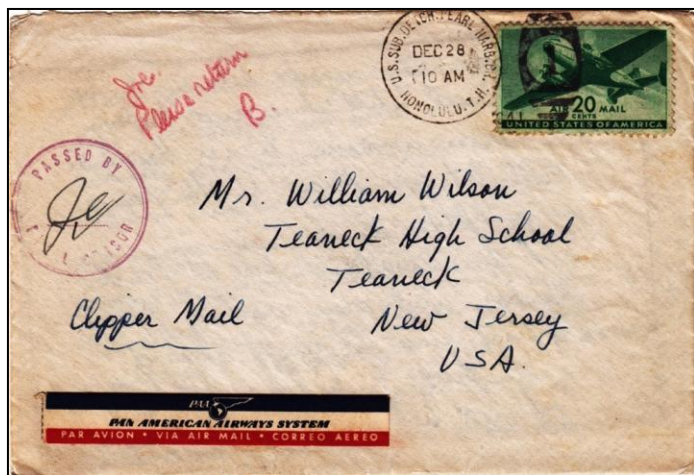 Joe
Please return
B.
U.S. SUB. DETCH. PEARL HARBOR,
DEC 28
10 AM
HONOLULU. T.H.
1941
1
AIR 20 MAIL
CENTS
UNITED STATES OF AMERICA
PASSED BY
Mr. William Wilson
Teaneck High School
Teaneck
New Jersey
USA.
Clipper Mail
PAA
PAN AMERICAN AIRWAYS SYSTEM
PAR AVION • VIA AIR MAIL • CORREO AEREO